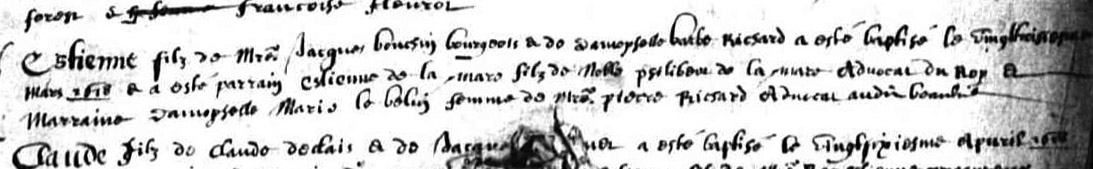 Françoise
Estienne filz de Mre Jacques bourgeois & de damoyselle barbe Richard a esté baptisé le
Mars 1618 & a esté parrain Estienne de la mare filz de Noble philibert de la mare Advocat du Roy &
Marraine damoyselle Marie le belin femme de Mre pierre Richard Advocat audit
Claude filz de Claude & de a esté baptisé le vingtsixiesme Apvril 1618